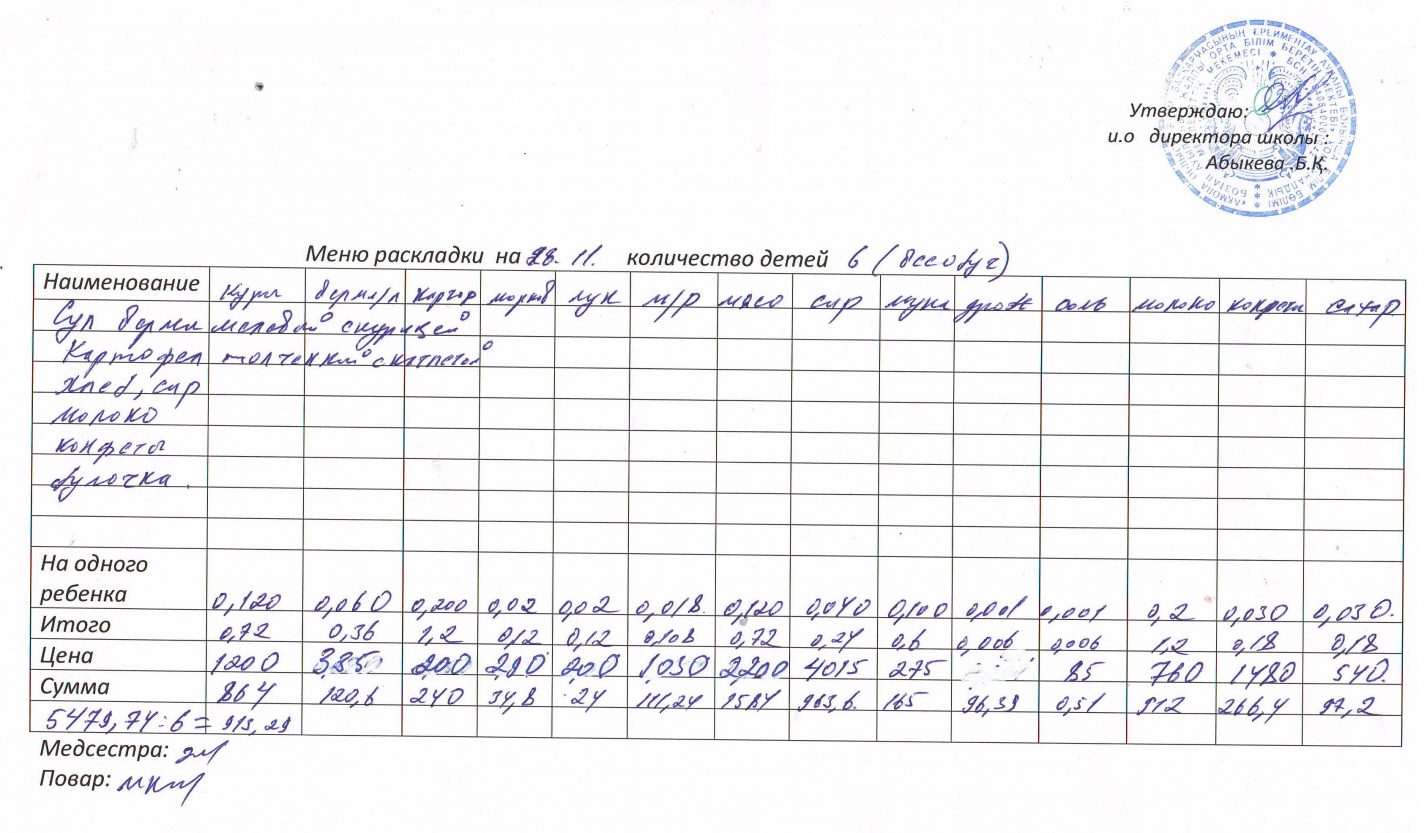 Утверждаю:
и.о директора школы :
Абыкева .Б.Қ.
Меню раскладки на 28. 11. количество детей 6 (всеобуч)
Наименование куры верми/л картор морков лук м/р мясо сыр мука дрож соль молоко конфеты сахар
Суп верми шелевый с курицей
Картофел толченный с котлетой
Хлеб, сыр
молоко
конфеты
булочка.
На одного
ребенка 0,120 0,060 0,200 0,02 0,02 0,018 0,120 0,040 0,100 0,001 0,001 0,2 0,030 0,030.
Итого 0,72 0,36 1,2 0,12 0,12 0,108 0,72 0,24 0,6 0,006 0,006 1,2 0,18 0,18
Цена 1200 335 200 290 200 1030 2200 4015 275 85 760 1480 540.
Сумма 864 120,6 240 34,8 24 111,24 1584 963,6. 165 96,39 0,51 912 266,4 97,2
5479,74:6= 913,29
Медсестра:
Повар: